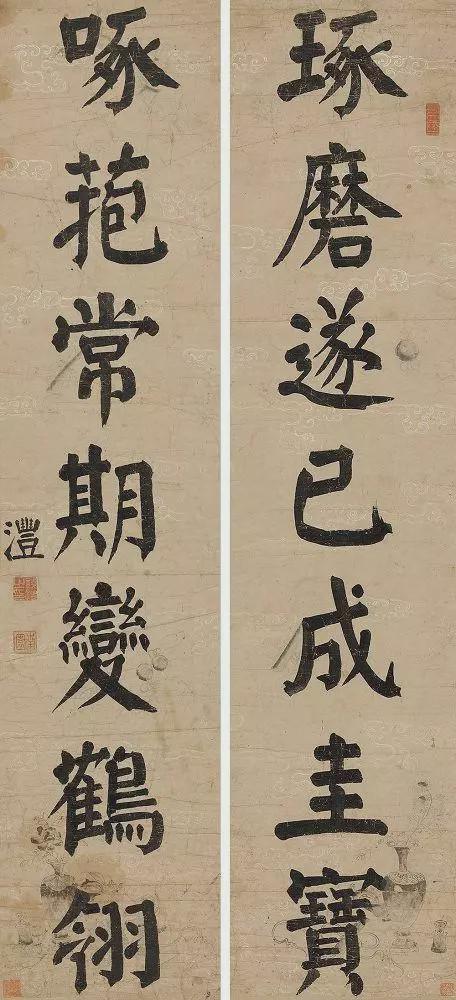 琢磨遂已成圭寶
啄菢常期變鶴翎
澧